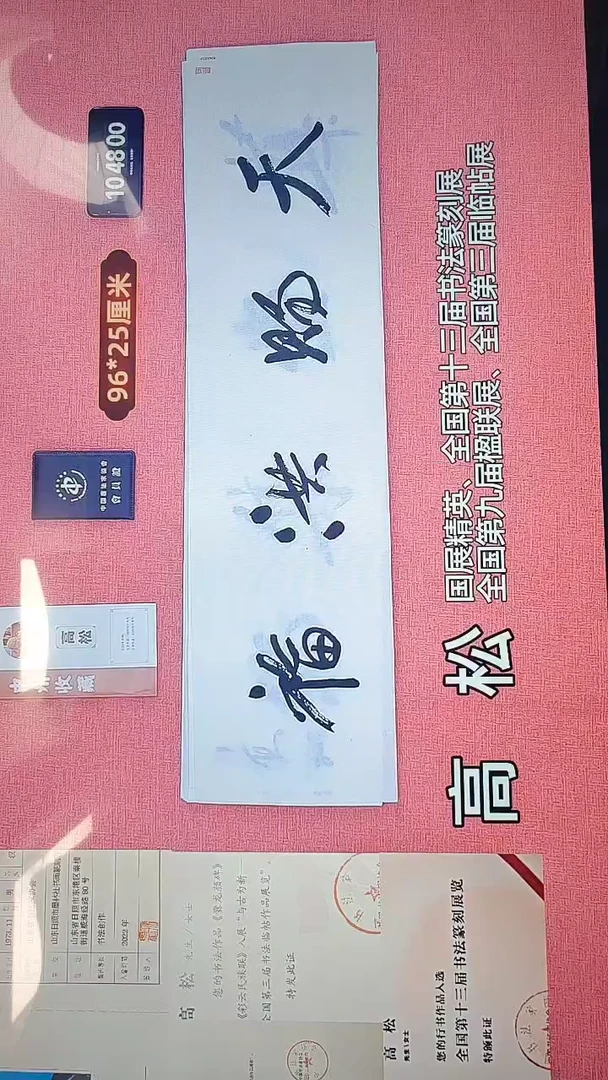 书法创作
2022年
收藏
高松
中国書法家協會
會員證
96*25厘米
104800
天赐洪福
高 松
国展精英、全国第十三届书法篆刻展
全国第九届楹联展、全国第三届临帖展
高 松 先生/女士
您的书法作品《爨龙颜碑》
全国第三届书法临帖作品展览"。
特发此证
高 松
先生\女士
您的行书作品入选
全国第十三届书法篆刻展览
特颁此证